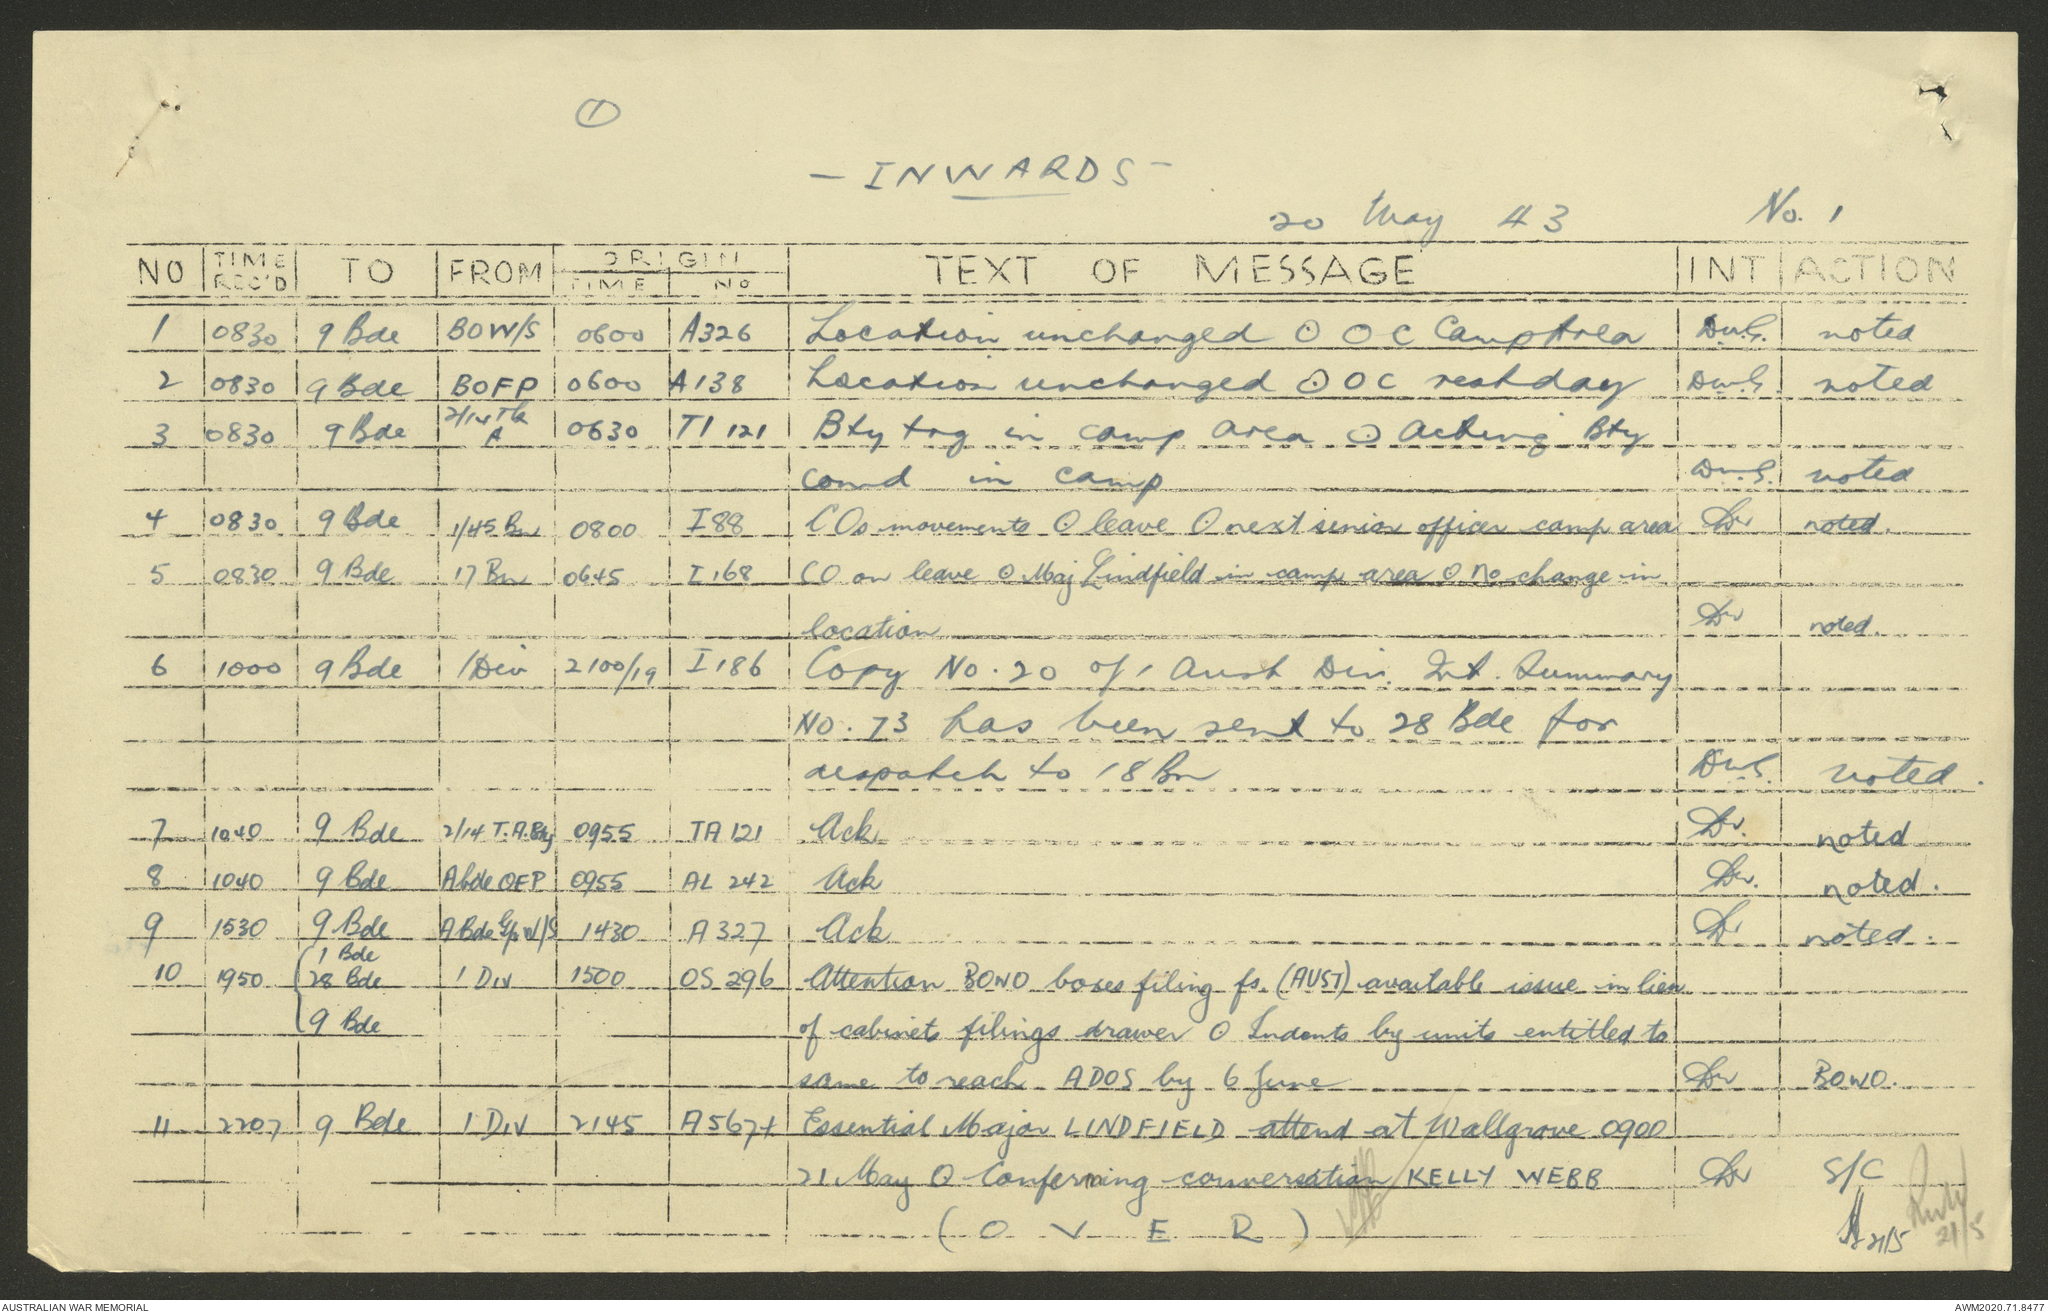 1
- INWARDS -
20 May 43 No. 1
NO TIME REC'D TO FROM ORIGIN TIME No TEXT OF MESSAGE INT ACTION
1 0830 9 Bde BOW/S 0600 A326 Location unchanged ⊙ OC Camp Area D.W.S. noted
2 0830 9 Bde BOFP 0600 A138 Location unchanged ⊙ OC rest day noted
3 0830 9 Bde 2/14 Tk A 0630 TI 121 Bty trg in camp area ⊙ Acting Bty
comd in camp noted
4 0830 9 Bde 1/45 Bn 0800 I 88 COs movements ⊙ leave ⊙ next senior officer camp area noted.
5 0830 9 Bde 17 Bn 0645 I 168 CO on leave ⊙ Maj Lindfield in camp area ⊙ no change in
location noted.
6 1000 9 Bde 1 Div 2100/19 I 186 Copy No. 20 of 1 Aust Div. Int. Summary
No. 73 has been sent to 28 Bde for
despatch to 18 Bn noted.
7 1040 9 Bde 2/14 T.A. Bty 0955 TA 121 Ack noted
8 1040 9 Bde A bde OFP 0955 AL 242 Ack noted.
9 1530 9 Bde A Bde Gp W/S 1430 A 327 Ack noted.
1 Bde
10 1950 28 Bde 1 Div 1500 OS 296 Attention BOWO boxes filing fs. (AUST) available issue in lieu
9 Bde of cabinets filings drawer ⊙ Indents by units entitled to
same to reach ADOS by 6 June BOWO.
11 2207 9 Bde 1 Div 2145 A567+ Essential Major LINDFIELD attend at Wallgrove 0900
21 May ⊙ Conferming conversation KELLY WEBB S/C
(OVER) 21/5 21/5
AUSTRALIAN WAR MEMORIAL AWM2020.71.8477